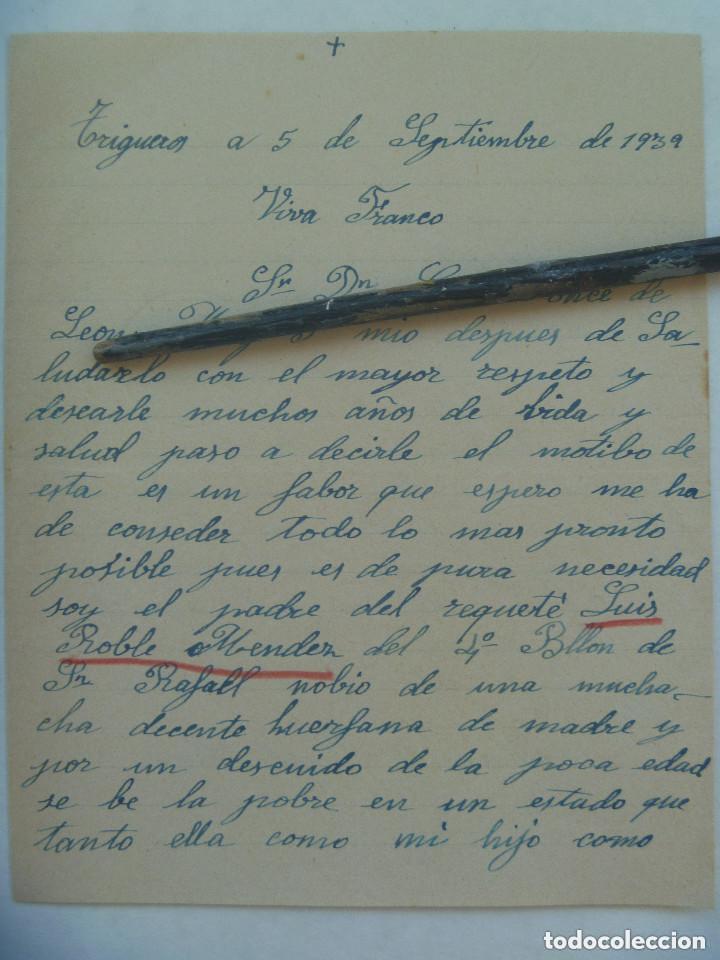 +
Trigueros a 5 de Septiembre de 1939
Viva Franco
Sr Dn
Leon mio despues de Sa-
ludarlo con el mayor respeto y
desearle muchos años de vida y
salud paso a decirle el motibo de
esta es un fabor que espero me ha
de conseder todo lo mas pronto
posible pues es de pura necesidad
soy el padre del requeté Luis
Roble Mendez del 4º Bllon de
Sn Rafall nobio de una mucha-
cha decente huerfana de madre y
por un descuido de la poca edad
se be la pobre en un estado que
tanto ella como mi hijo como
todocoleccion.net